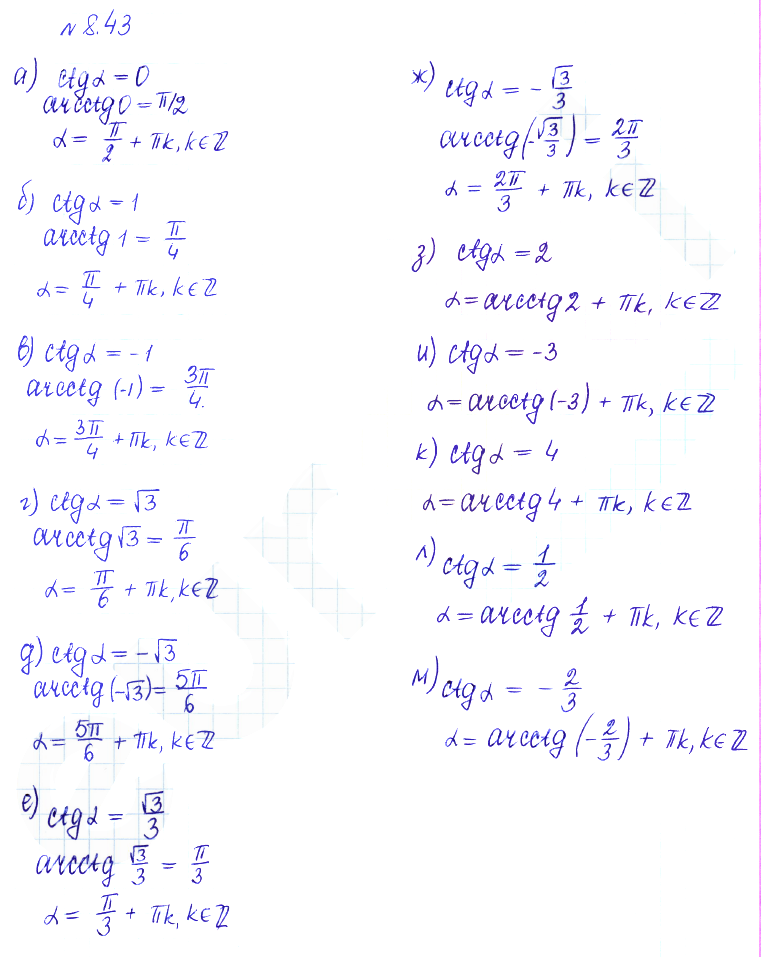 № 8.43
а) ctg α = 0
arcctg 0 = π/2
α = π/2 + πk, k∈ℤ
б) ctg α = 1
arcctg 1 = π/4
α = π/4 + πk, k∈ℤ
в) ctg α = -1
arcctg (-1) = 3π/4.
α = 3π/4 + πk, k∈ℤ
г) ctg α = √3
arcctg √3 = π/6
α = π/6 + πk, k∈ℤ
д) ctg α = -√3
arcctg (-√3) = 5π/6
α = 5π/6 + πk, k∈ℤ
е) ctg α = √3/3
arcctg √3/3 = π/3
α = π/3 + πk, k∈ℤ
ж) ctg α = -√3/3
arcctg (-√3/3) = 2π/3
α = 2π/3 + πk, k∈ℤ
з) ctg α = 2
α = arcctg 2 + πk, k∈ℤ
и) ctg α = -3
α = arcctg (-3) + πk, k∈ℤ
к) ctg α = 4
α = arcctg 4 + πk, k∈ℤ
л) ctg α = 1/2
α = arcctg 1/2 + πk, k∈ℤ
м) ctg α = -2/3
α = arcctg (-2/3) + πk, k∈ℤ